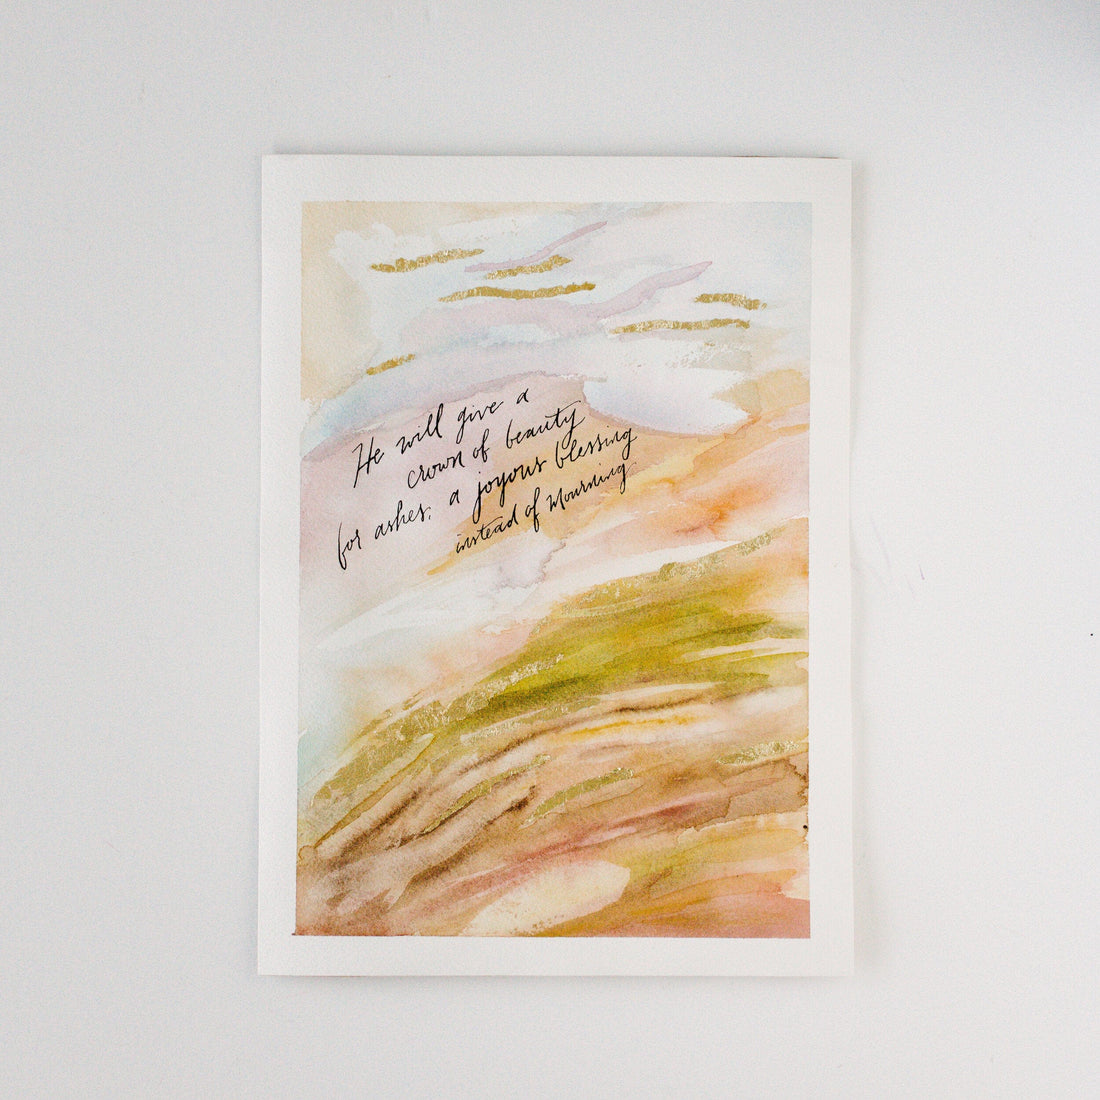 He will give a
crown of beauty
for ashes, a joyous blessing
instead of mourning